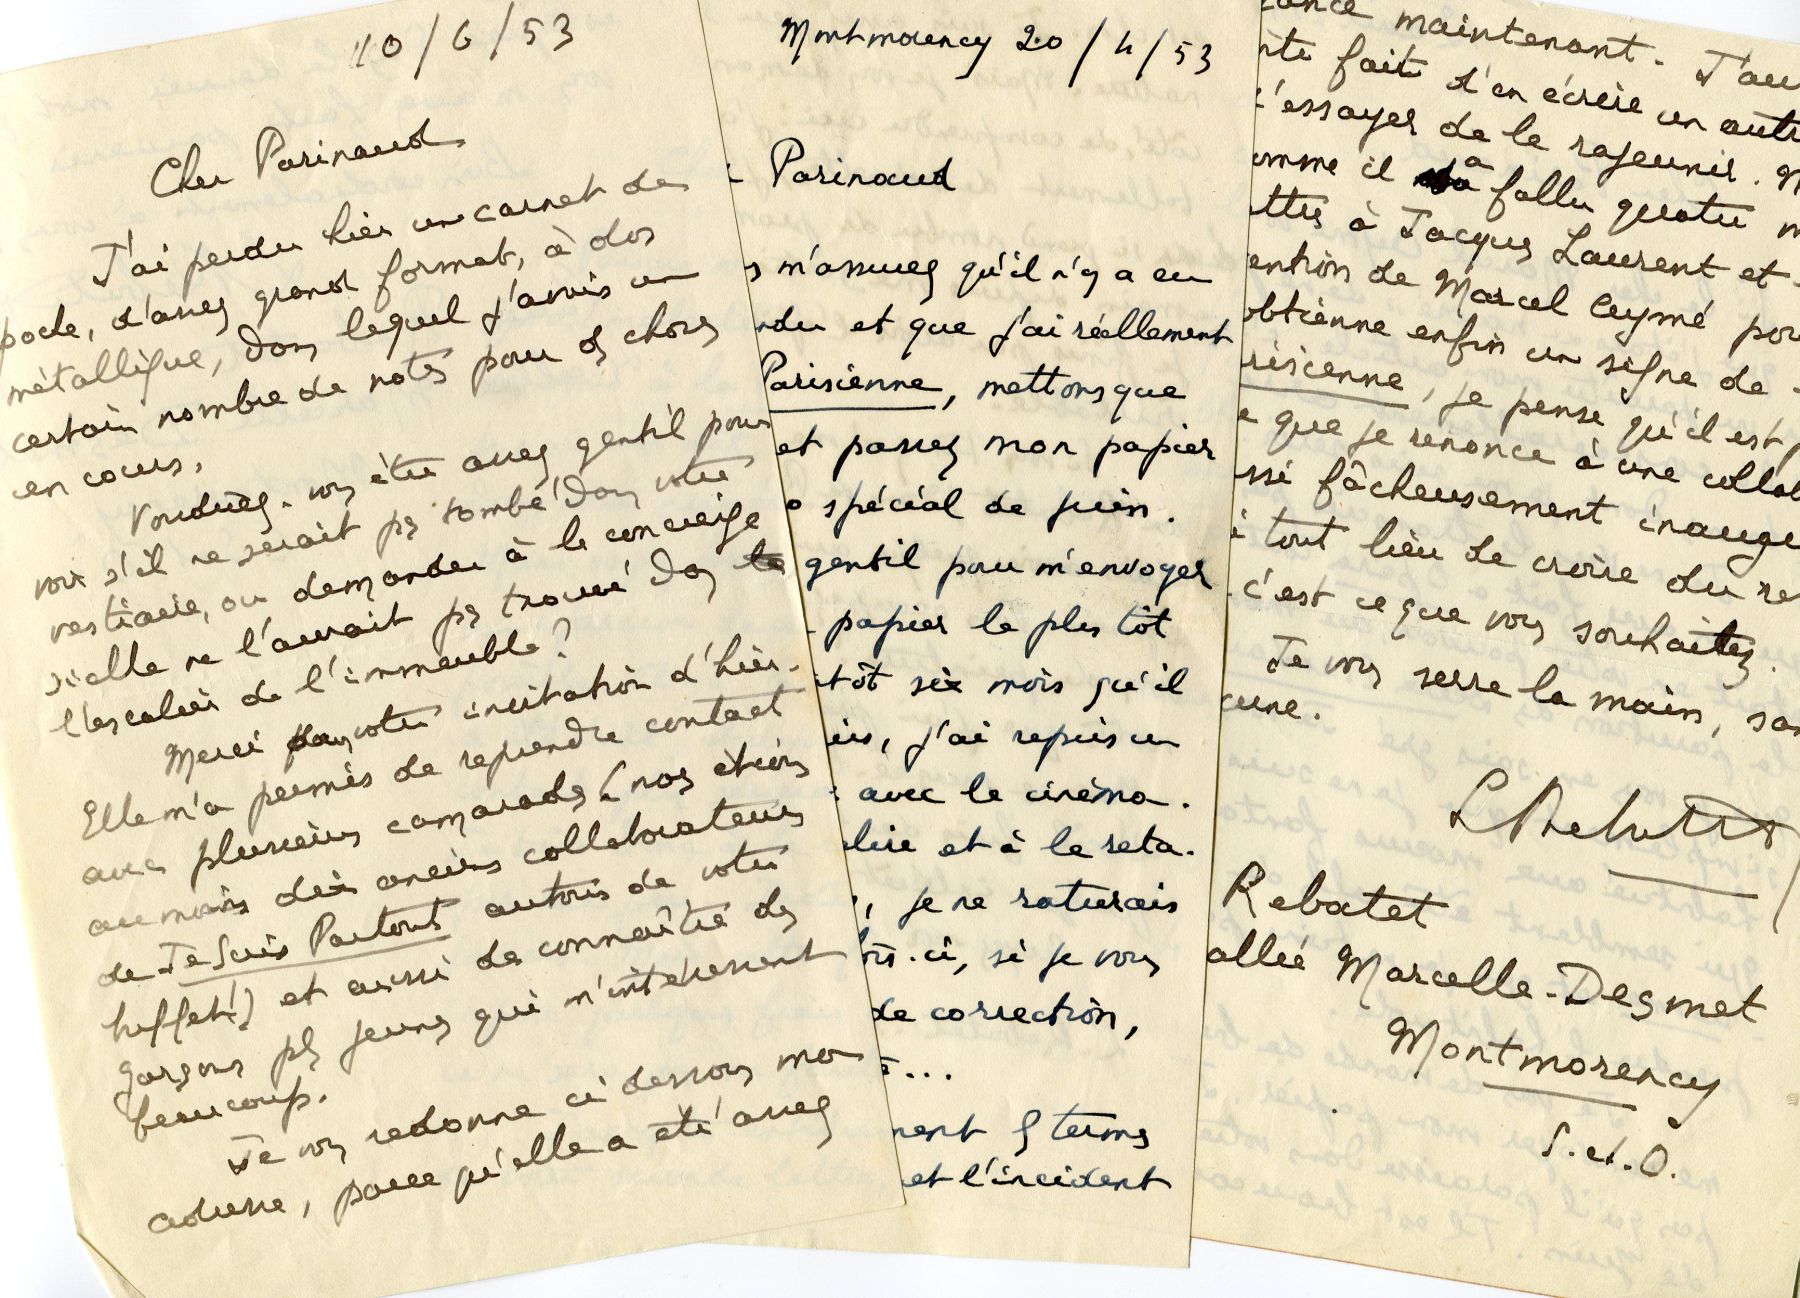 10/6/53
Cher Parinaud
J'ai perdu hier un carnet de
poche, d'assez grand format, à dos
métallique, dans lequel j'avais un
certain nombre de notes pour des choses
en cours.
Voudriez-vous être assez gentil pour
voir s'il ne serait pas tombé dans votre
vestiaire, ou demander à la concierge
si elle ne l'aurait pas trouvé dans
l'escalier de l'immeuble?
Merci votre invitation d'hier.
Elle m'a permis de reprendre contact
avec plusieurs camarades (nous étions
au moins dix anciens collaborateurs
de Je Suis Partout autour de votre
buffet!) et aussi de connaître des
garçons plus jeunes qui m'intéressent
beaucoup.
Je vous redonne ci dessous mon
adresse, parce qu'elle a été assez
Montmorency 20/4/53
Parinaud
s m'assurez qu'il n'y a eu
ndu et que j'ai réellement
Parisienne, mettons que
et passez mon papier
o spécial de juin.
gentil pour m'envoyer
papier le plus tôt
tôt six mois qu'il
is, j'ai repris un
avec le cinéma.
lire et à le reta-
, je ne raturais
ois-ci, si je vous
de correction,
...
ment les termes
et l'incident
ance maintenant. J'au
nte fait d'en écrire un autr
d'essayer de le rajeunir. M
omme il a fallu quatre m
ttres à Jacques Laurent et
ention de Marcel Aymé pour
obtienne enfin un signe de
risienne, je pense qu'il est
e que je renonce à une collab
ssi fâcheusement inaugu
i tout lieu de croire du re
c'est ce que vous souhaitez.
Je vous serre la main, san
cune.
L Rebatet
Rebatet
allée Marcelle-Desmet
Montmorency
S.et.O.